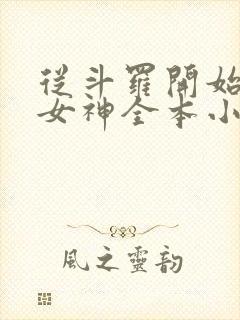 從斗羅開始
女神全本小
風之靈韵